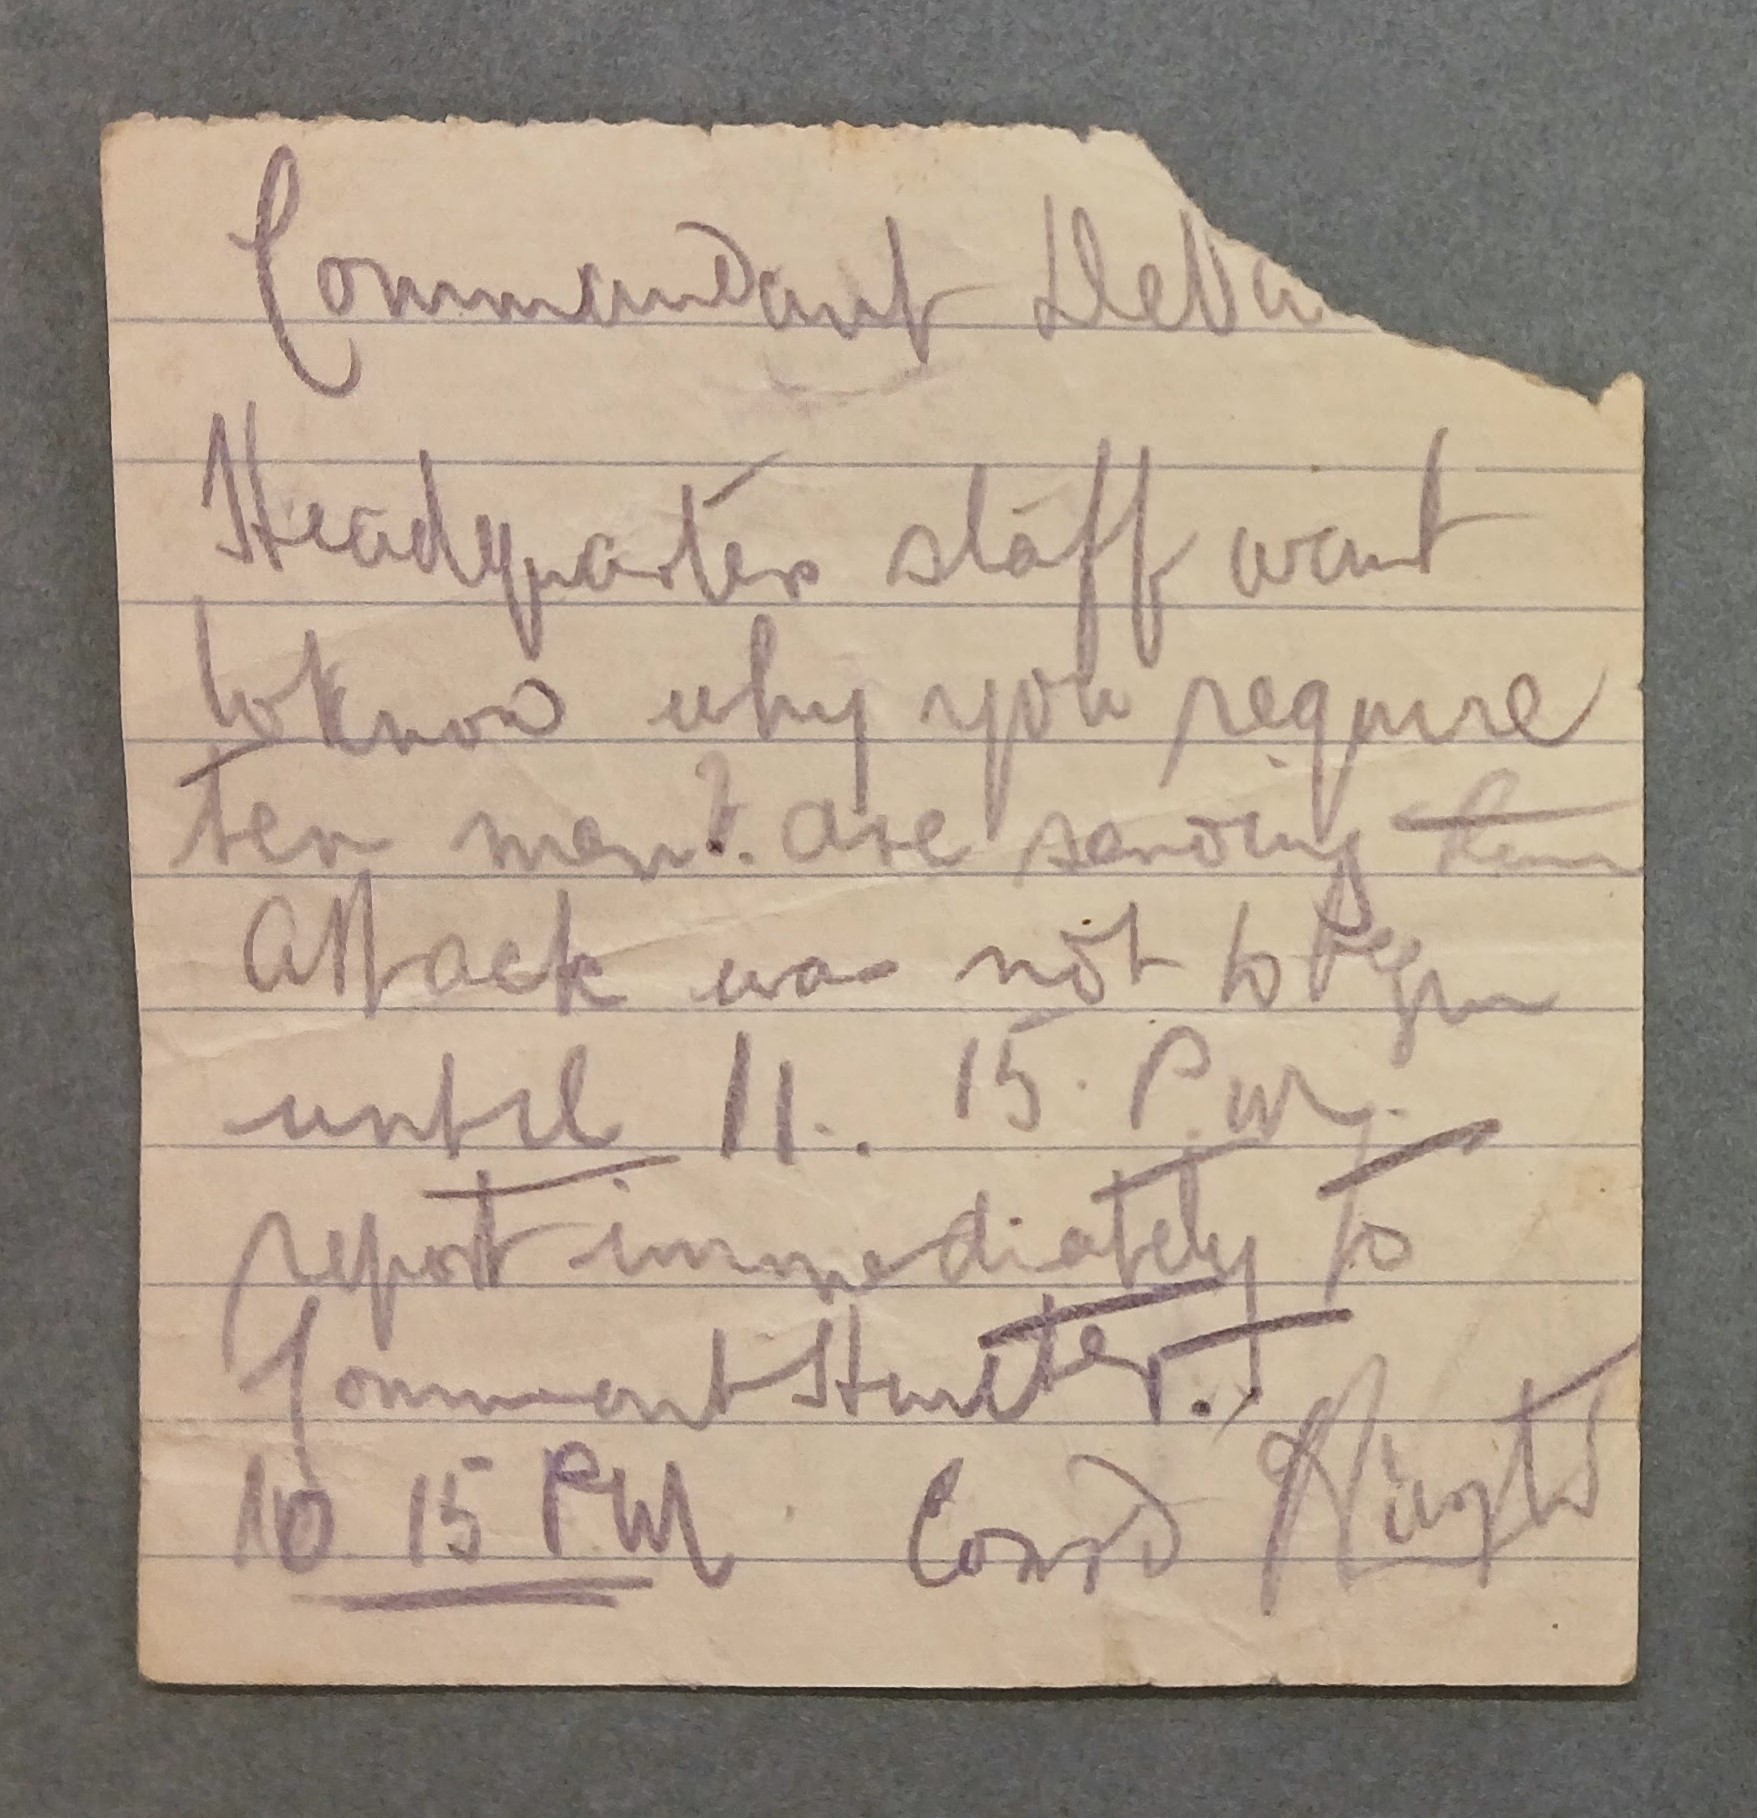 Commandant DeVa
Headquarters staff want
to know why you require
ten men? are sending them
Attack was not to begin
until 11. 15. P.M.
report immediately to
Command Hunter.
10 15 PM Comd